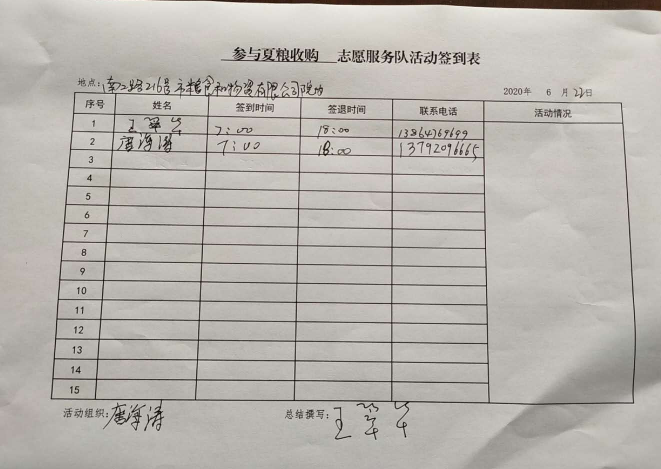 参与夏粮收购 志愿服务队活动签到表
地点:南二路216号市粮食和物资有限公司院内 2020年 6 月 23日
序号 姓名 签到时间 签退时间 联系电话 活动情况
1 王翠华 7:00 18:00
2 唐海涛 7:00 18:00 13792096665
3
4
5
6
7
8
9
10
11
12
13
14
15
活动组织:唐海涛 总结撰写:王翠华